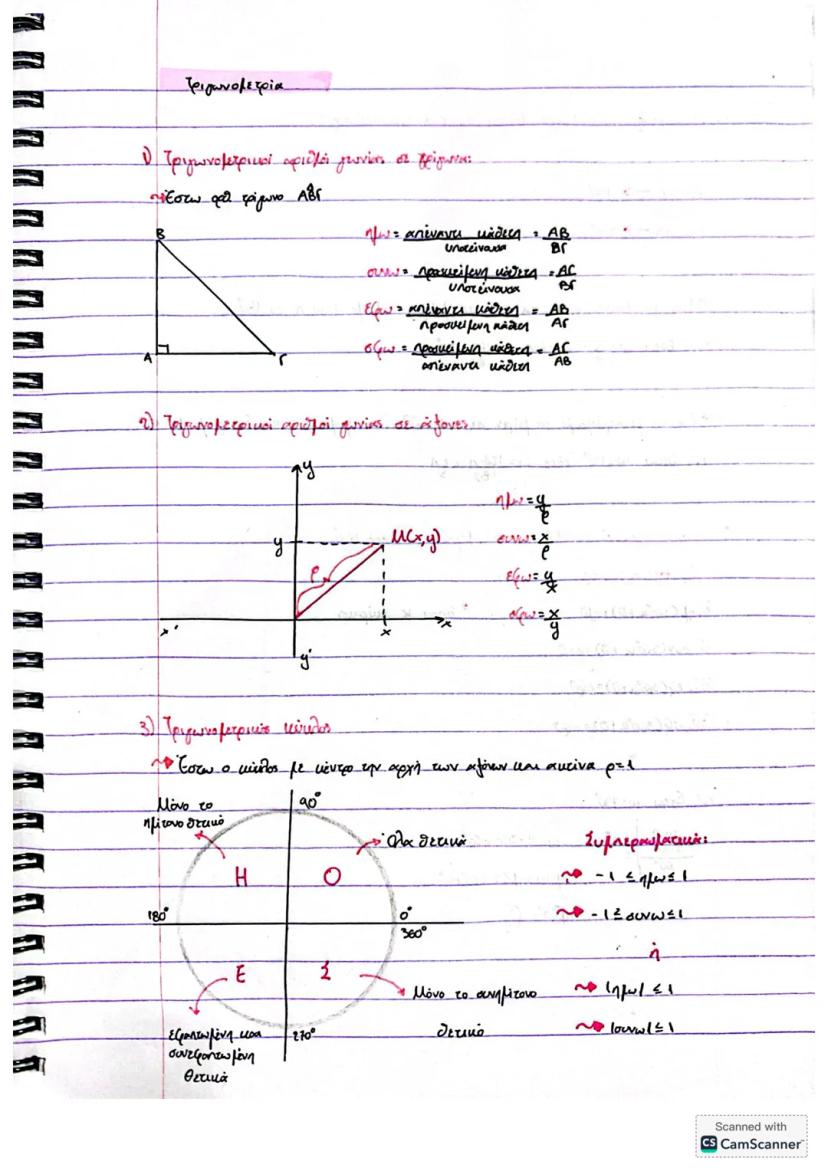 Τριγωνομετρία
1) Τριγωνομετρικοί αριθμοί γωνίας σε τρίγωνα:
Έστω ορθ τρίγωνο ΑΒΓ
Β
Α
Γ
ημω = απέναντι κάθετη / υποτείνουσα = ΑΒ / ΒΓ
συνω = προσκείμενη κάθετη / υποτείνουσα = ΑΓ / ΒΓ
εφω = απέναντι κάθετη / προσκείμενη κάθετη = ΑΒ / ΑΓ
σφω = προσκείμενη κάθετη / απέναντι κάθετη = ΑΓ / ΑΒ
2) Τριγωνομετρικοί αριθμοί γωνίας σε άξονες
y
y
M(x,y)
ρ
x'
x
x
y'
ημω = y/ρ
συνω = x/ρ
εφω = y/x
σφω = x/y
3) Τριγωνομετρικός κύκλος
Έστω ο κύκλος με κέντρο την αρχή των αξόνων και ακτίνα ρ=1
Μόνο το
ημίτονο θετικό
90°
Όλα θετικά
Η
Ο
180°
0°
360°
Ε
Σ
Μόνο το συνημίτονο
θετικό
270°
Εφαπτωμένη και
συνεφαπτωμένη
θετικά
Συμπερασματικά:
-1 ≤ ημω ≤ 1
-1 ≥ συνω ≤ 1
ή
|ημω| ≤ 1
|συνω| ≤ 1
Scanned with
CS CamScanner